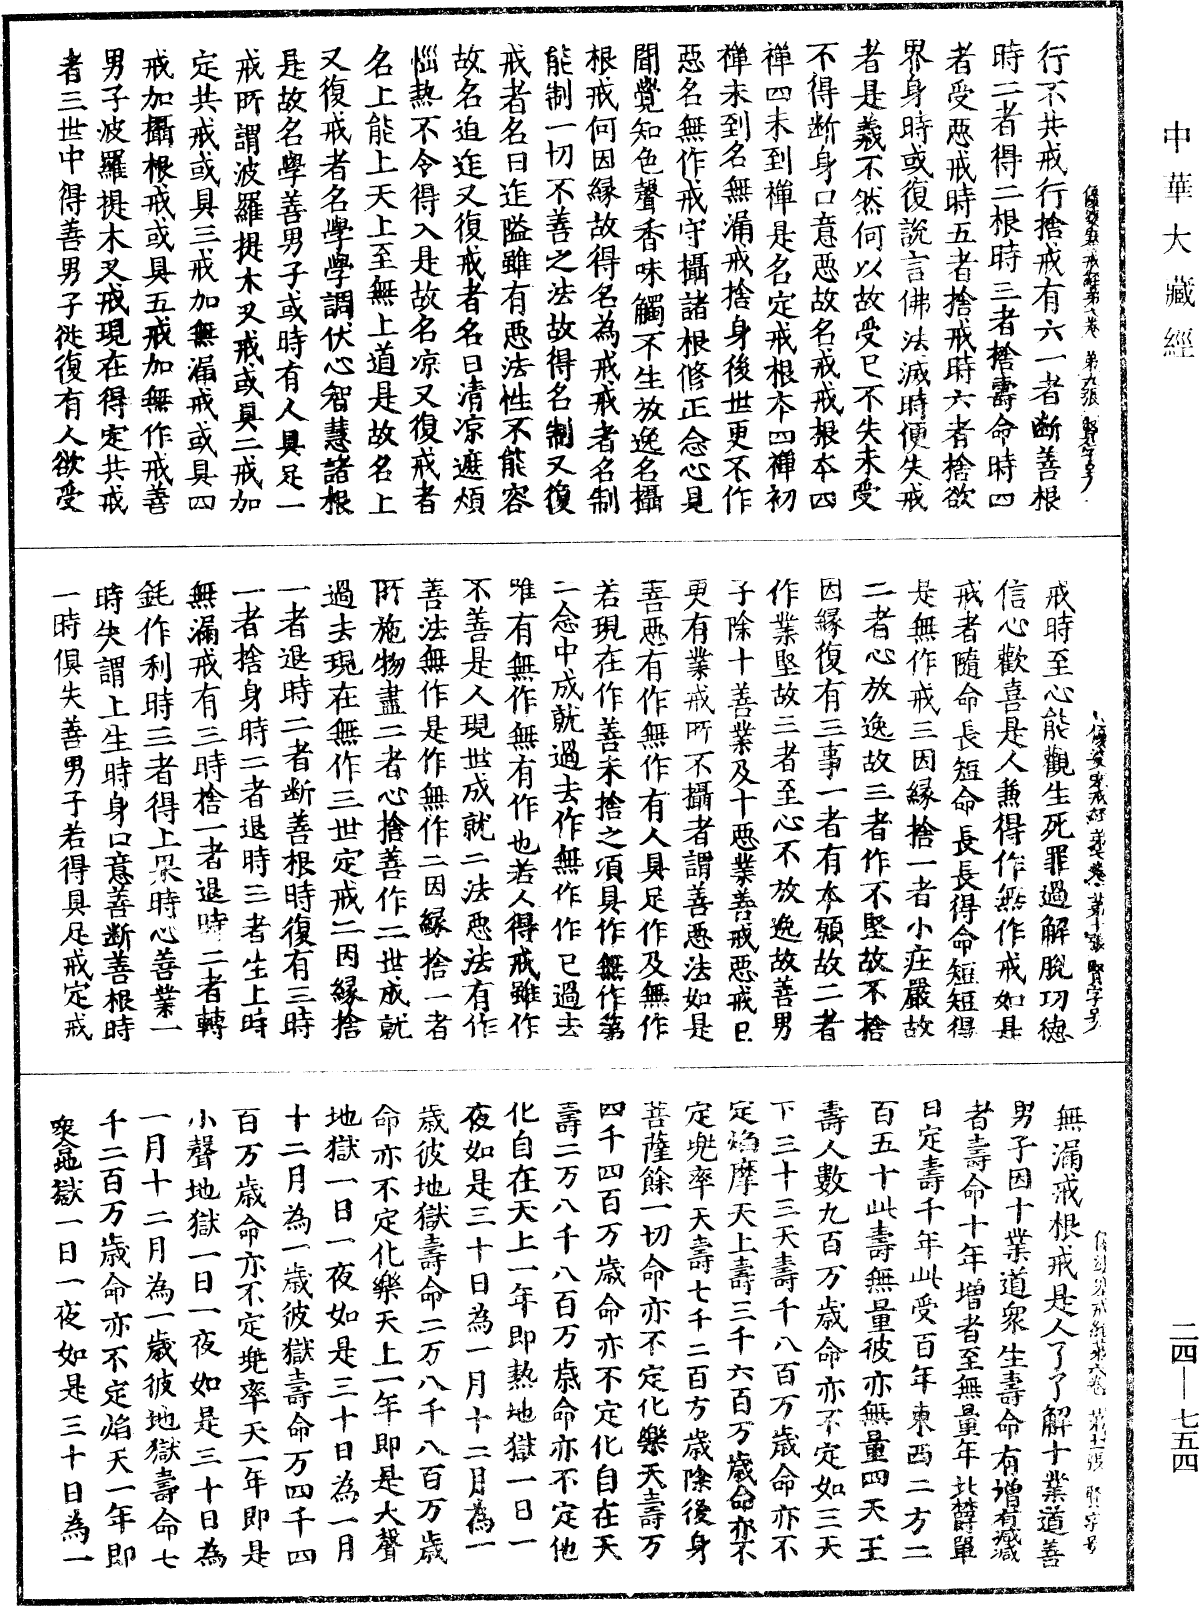 中華大藏經
行不共戒行捨戒有六一者斷善根
時二者得二根時三者捨壽命時四
者受惡戒時五者捨戒時六者捨欲
界身時或復說言佛法滅時便失戒
者是義不然何以故受已不失未受
不得斷身口意惡故名戒戒根本四
禪四未到禪是名定戒根本四禪初
禪未到名無漏戒捨身後世更不作
惡名無作戒守攝諸根修正念心見
聞覺知色聲香味觸不生放逸名攝
根戒何因緣故得名為戒戒者名制
能制一切不善之法故得名制又復
戒者名曰迮隘雖有惡法性不能容
故名迫迮又復戒者名曰清涼遮煩
惱熱不令得入是故名涼又復戒者
名上能上天上至無上道是故名上
又復戒者名學學調伏心智慧諸根
是故名學善男子或時有人具足一
戒所謂波羅提木叉戒或具二戒加
定共戒或具三戒加無漏戒或具四
戒加攝根戒或具五戒加無作戒善
男子波羅提木叉戒現在得定共戒
者三世中得善男子從復有人欲受
戒時至心能觀生死罪過解脫功德
信心歡喜是人兼得作無作戒如是
戒者隨命長短命長長得命短短得
是無作戒三因緣捨一者小莊嚴故
二者心放逸故三者作不堅故不捨
因緣復有三事一者有本願故二者
作業堅故三者至心不放逸故善男
子除十善業及十惡業善戒惡戒已
更有業戒所不攝者謂善惡法如是
善惡有作無作有人具足作及無作
若現在作善未捨之項具作無作第
二念中成就過去作無作作已過去
唯有無作無有作也若人得戒雖作
不善是人現世成就二法惡法有作
善法無作是作無作二因緣捨一者
所施物盡二者心捨善作二世成就
過去現在無作三世定戒二因緣捨
一者退時二者斷善根時復有三時
一者捨身時二者退時三者生上時
無漏戒有三時捨一者退時二者轉
鈍作利時三者得上果時心善業一
時失謂上生時身口意善斷善根時
一時俱失善男子若得具足戒定戒
無漏戒根戒是人了了解十業道善
男子因十業道眾生壽命有增有減
者壽命十年增者至無量年北欝單
曰定壽千年此受百年東西二方二
百五十此壽無量彼亦無量四天王
壽人數九百万歲命亦不定如三天
下三十三天壽千八百万歲命亦不
定焰摩天上壽三千六百万歲命亦不
定兜率天壽七千二百万歲除後身
菩薩餘一切命亦不定化樂天壽万
四千四百万歲命亦不定化自在天
壽二万八千八百万歲命亦不定他
化自在天上一年即熱地獄一日一
夜如是三十日為一月十二月為一
歲彼地獄壽命二万八千八百万歲
命亦不定化樂天上一年即是大聲
地獄一日一夜如是三十日為一月
十二月為一歲彼獄壽命万四千四
百万歲命亦不定兜率天一年即是
小聲地獄一日一夜如是三十日為
一月十二月為一歲彼地獄壽命七
千二百万歲命亦不定焰天一年即
眾合地獄一日一夜如是三十日為一
二四—七五四